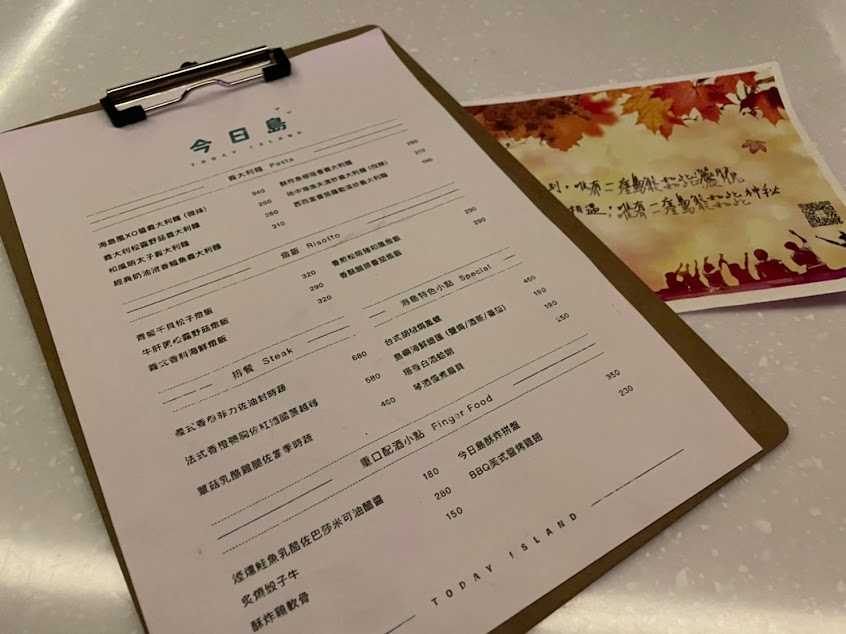 今日島
TODAY ISLAND
義大利麵 Pasta
海島風XO醬義大利麵 (微辣) 340
義大利松露野菇義大利麵
和風明太子義大利麵
經典奶油 義大利麵 310
酥炸 塔香義大利麵
地中海漁夫清炒義大利麵 (微辣) 310
西西里番茄羅勒清炒義大利麵
燉飯 Risotto
青醬干貝松子燉飯 320
牛肝蕈松露野菇燉飯 290
義式香料海鮮燉飯 320
香煎松阪豬和風燉飯 290
香酥雞排番茄燉飯 290
排餐 Steak
義式香煎菲力佐油封時蔬 680
法式香橙鴨胸佐紅酒醋藍越莓 580
蕈菇乳酪雞腿佐當季時蔬
海島特色小點 Special
台式胡椒燒鳳螺 450
島嶼海鮮總匯 (鹽焗/酒蒸/番茄) 190
塔香白酒蛤蜊 190
琴酒慢煮扇貝 250
重口配酒小點 Finger Food
煙燻鮭魚乳酪佐巴莎米可油醋醬 180
炙燒骰子牛 280
酥炸雞軟骨 150
今日島酥炸拼盤 350
BBQ美式醬烤雞翅 230
TODAY ISLAND
到，唯有二座島能如此
相遇；唯有二座島能如此神秘